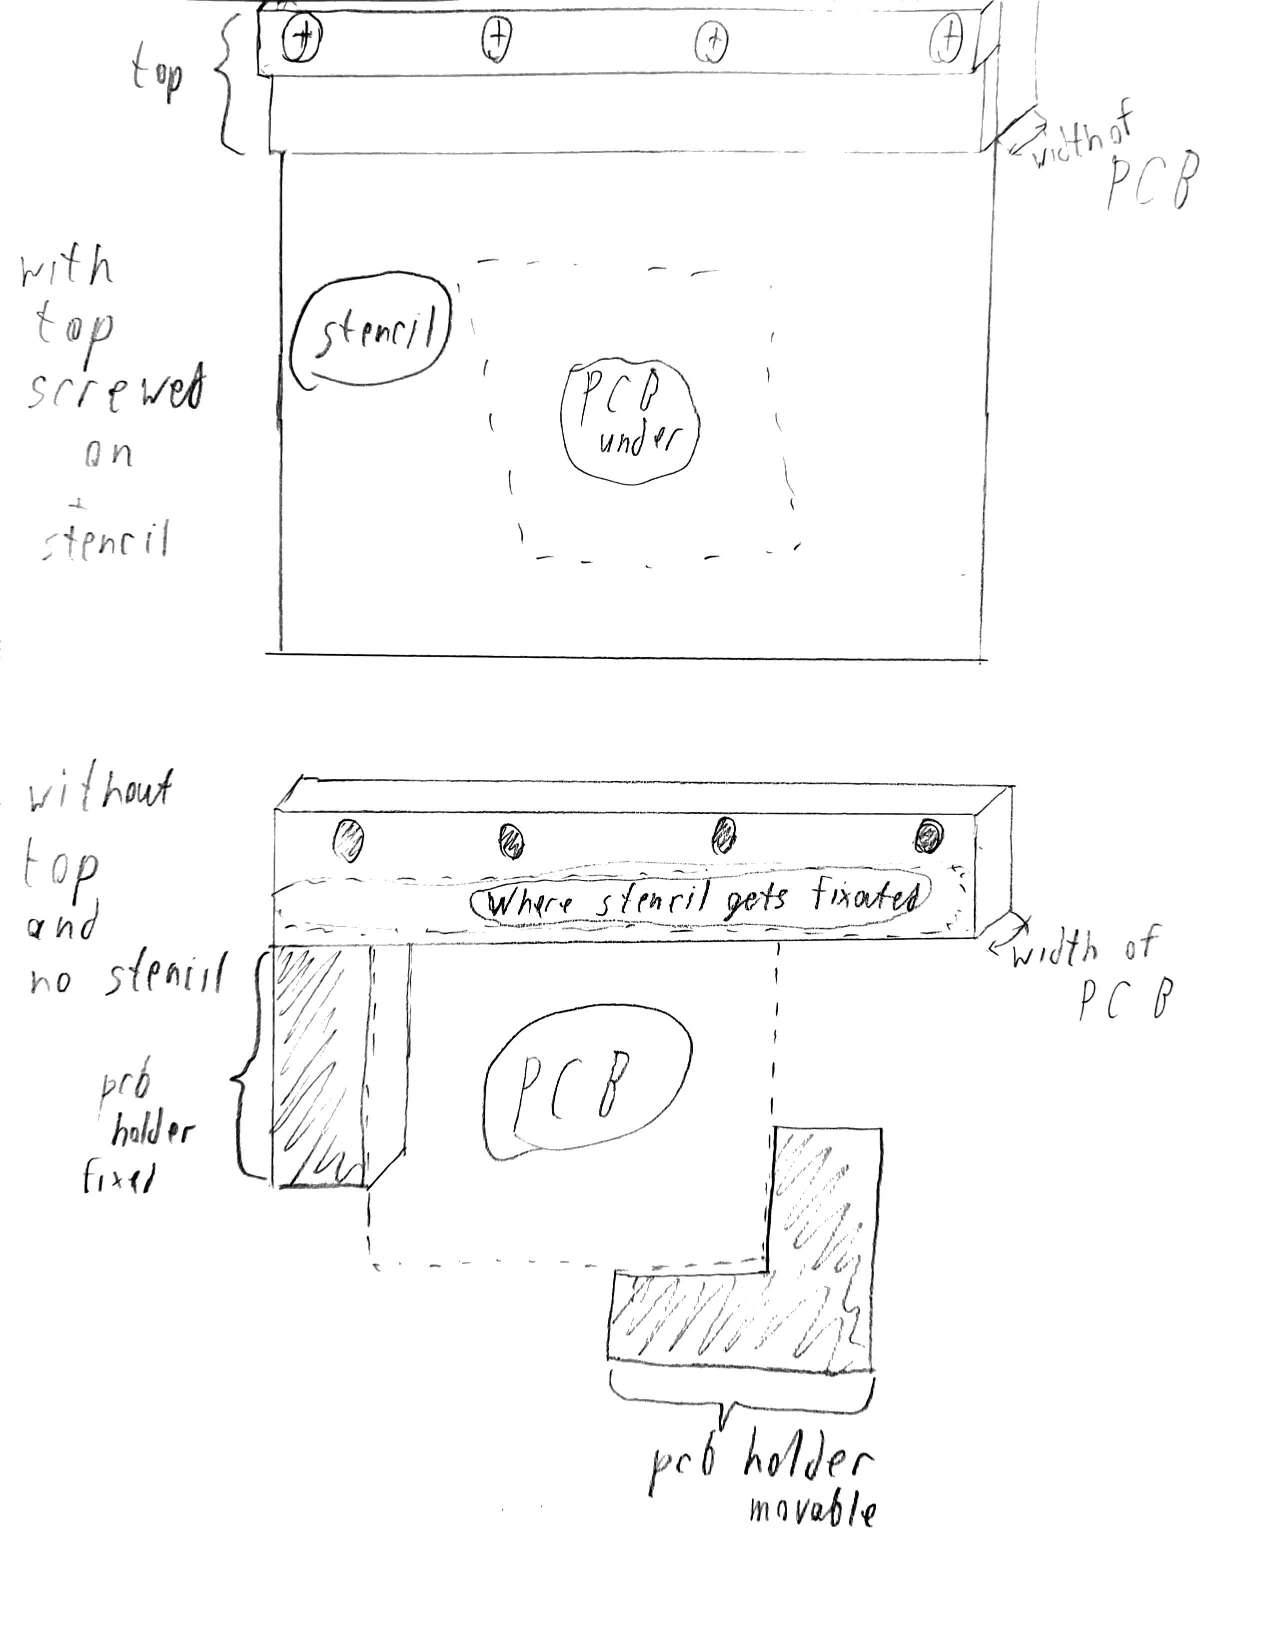 top
width of
PCB
with
top
screwed
on
+
stencil
stencil
PCB
under
without
top
and
no stencil
Where stencil gets fixated
width of
PCB
pcb
holder
fixed
PCB
pcb holder
movable